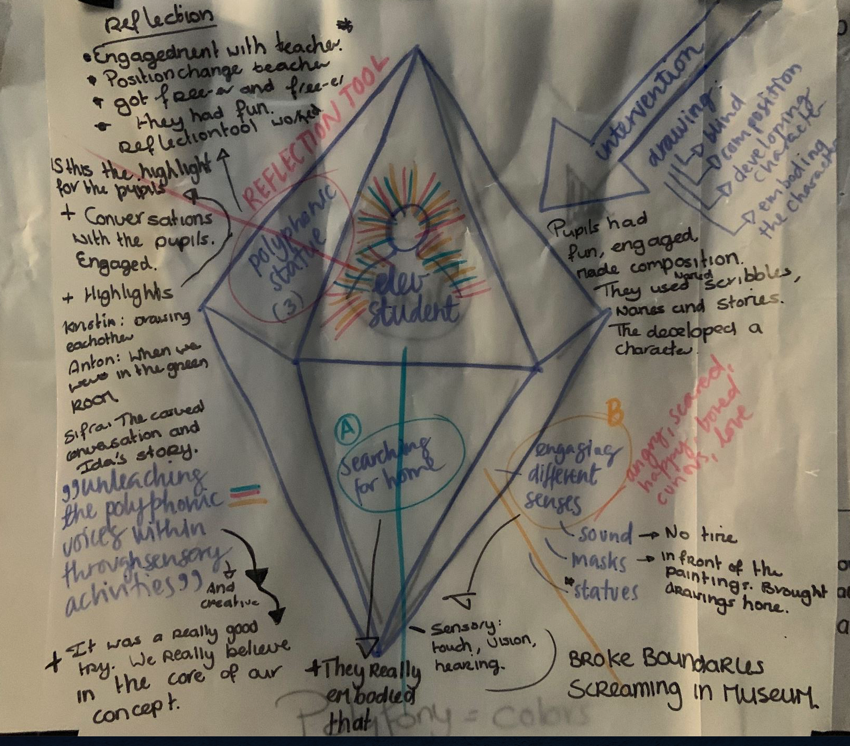 Reflection
• Engagednent with teacher. *
• Position change teacher
• got free-er and free-er
• they had fun.
Reflectiontool worked
REFLECTION TOOL
Is this the highlight
for the pupils
+ Conversations
with the pupils.
Engaged.
+ Highlights
Kristin: drawing
eachother
Anton: When we
were in the green
Room
Sifra: The carved
conversation and
Ida's story.
"unleaching
the polyphonic
voices within
throughsensory
activities"
And
creative
+ It was a really good
try. We Really believe
in the core of our
concept.
polyphonic
statue
(3)
student
A
searching
for home
+They Really
embodied
that
Polyfony = colors
intervention
drawing:
blind
composition
developing
character
emboding
the character
Pupils had
fun, engaged,
made composition.
They used words scribbles,
Names and stories.
The developed a
character.
B
engaging
different
senses
angry, scared,
happy, bored
curious, love
sound → No time
masks → in front of the
paintings. Brought
drawings home.
*statues
- Sensory:
touch, vision,
hearing.
BROKE BOUNDARIES
SCREAMING IN MUSEUM.